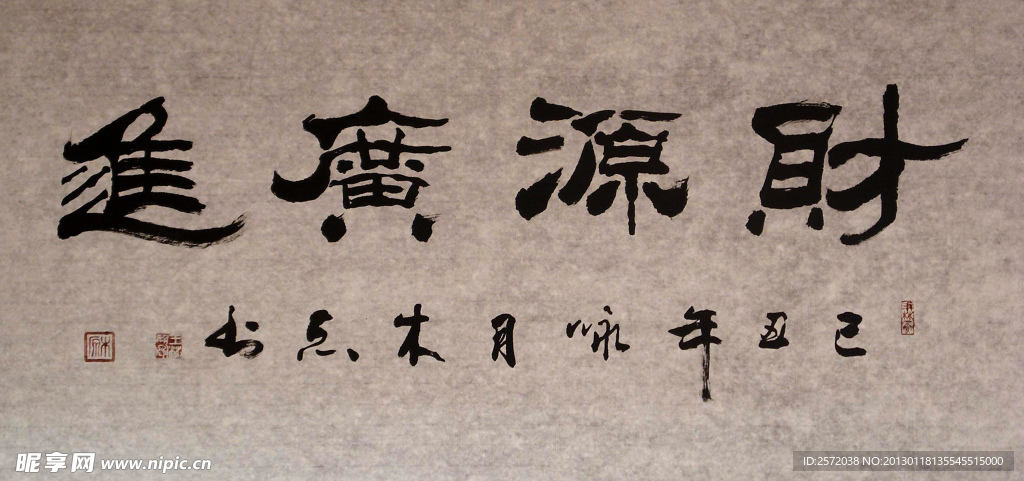 財源廣進
己丑年咏月木志书
昵享网 www.nipic.cn
ID:2572038 NO:20130118135545515000